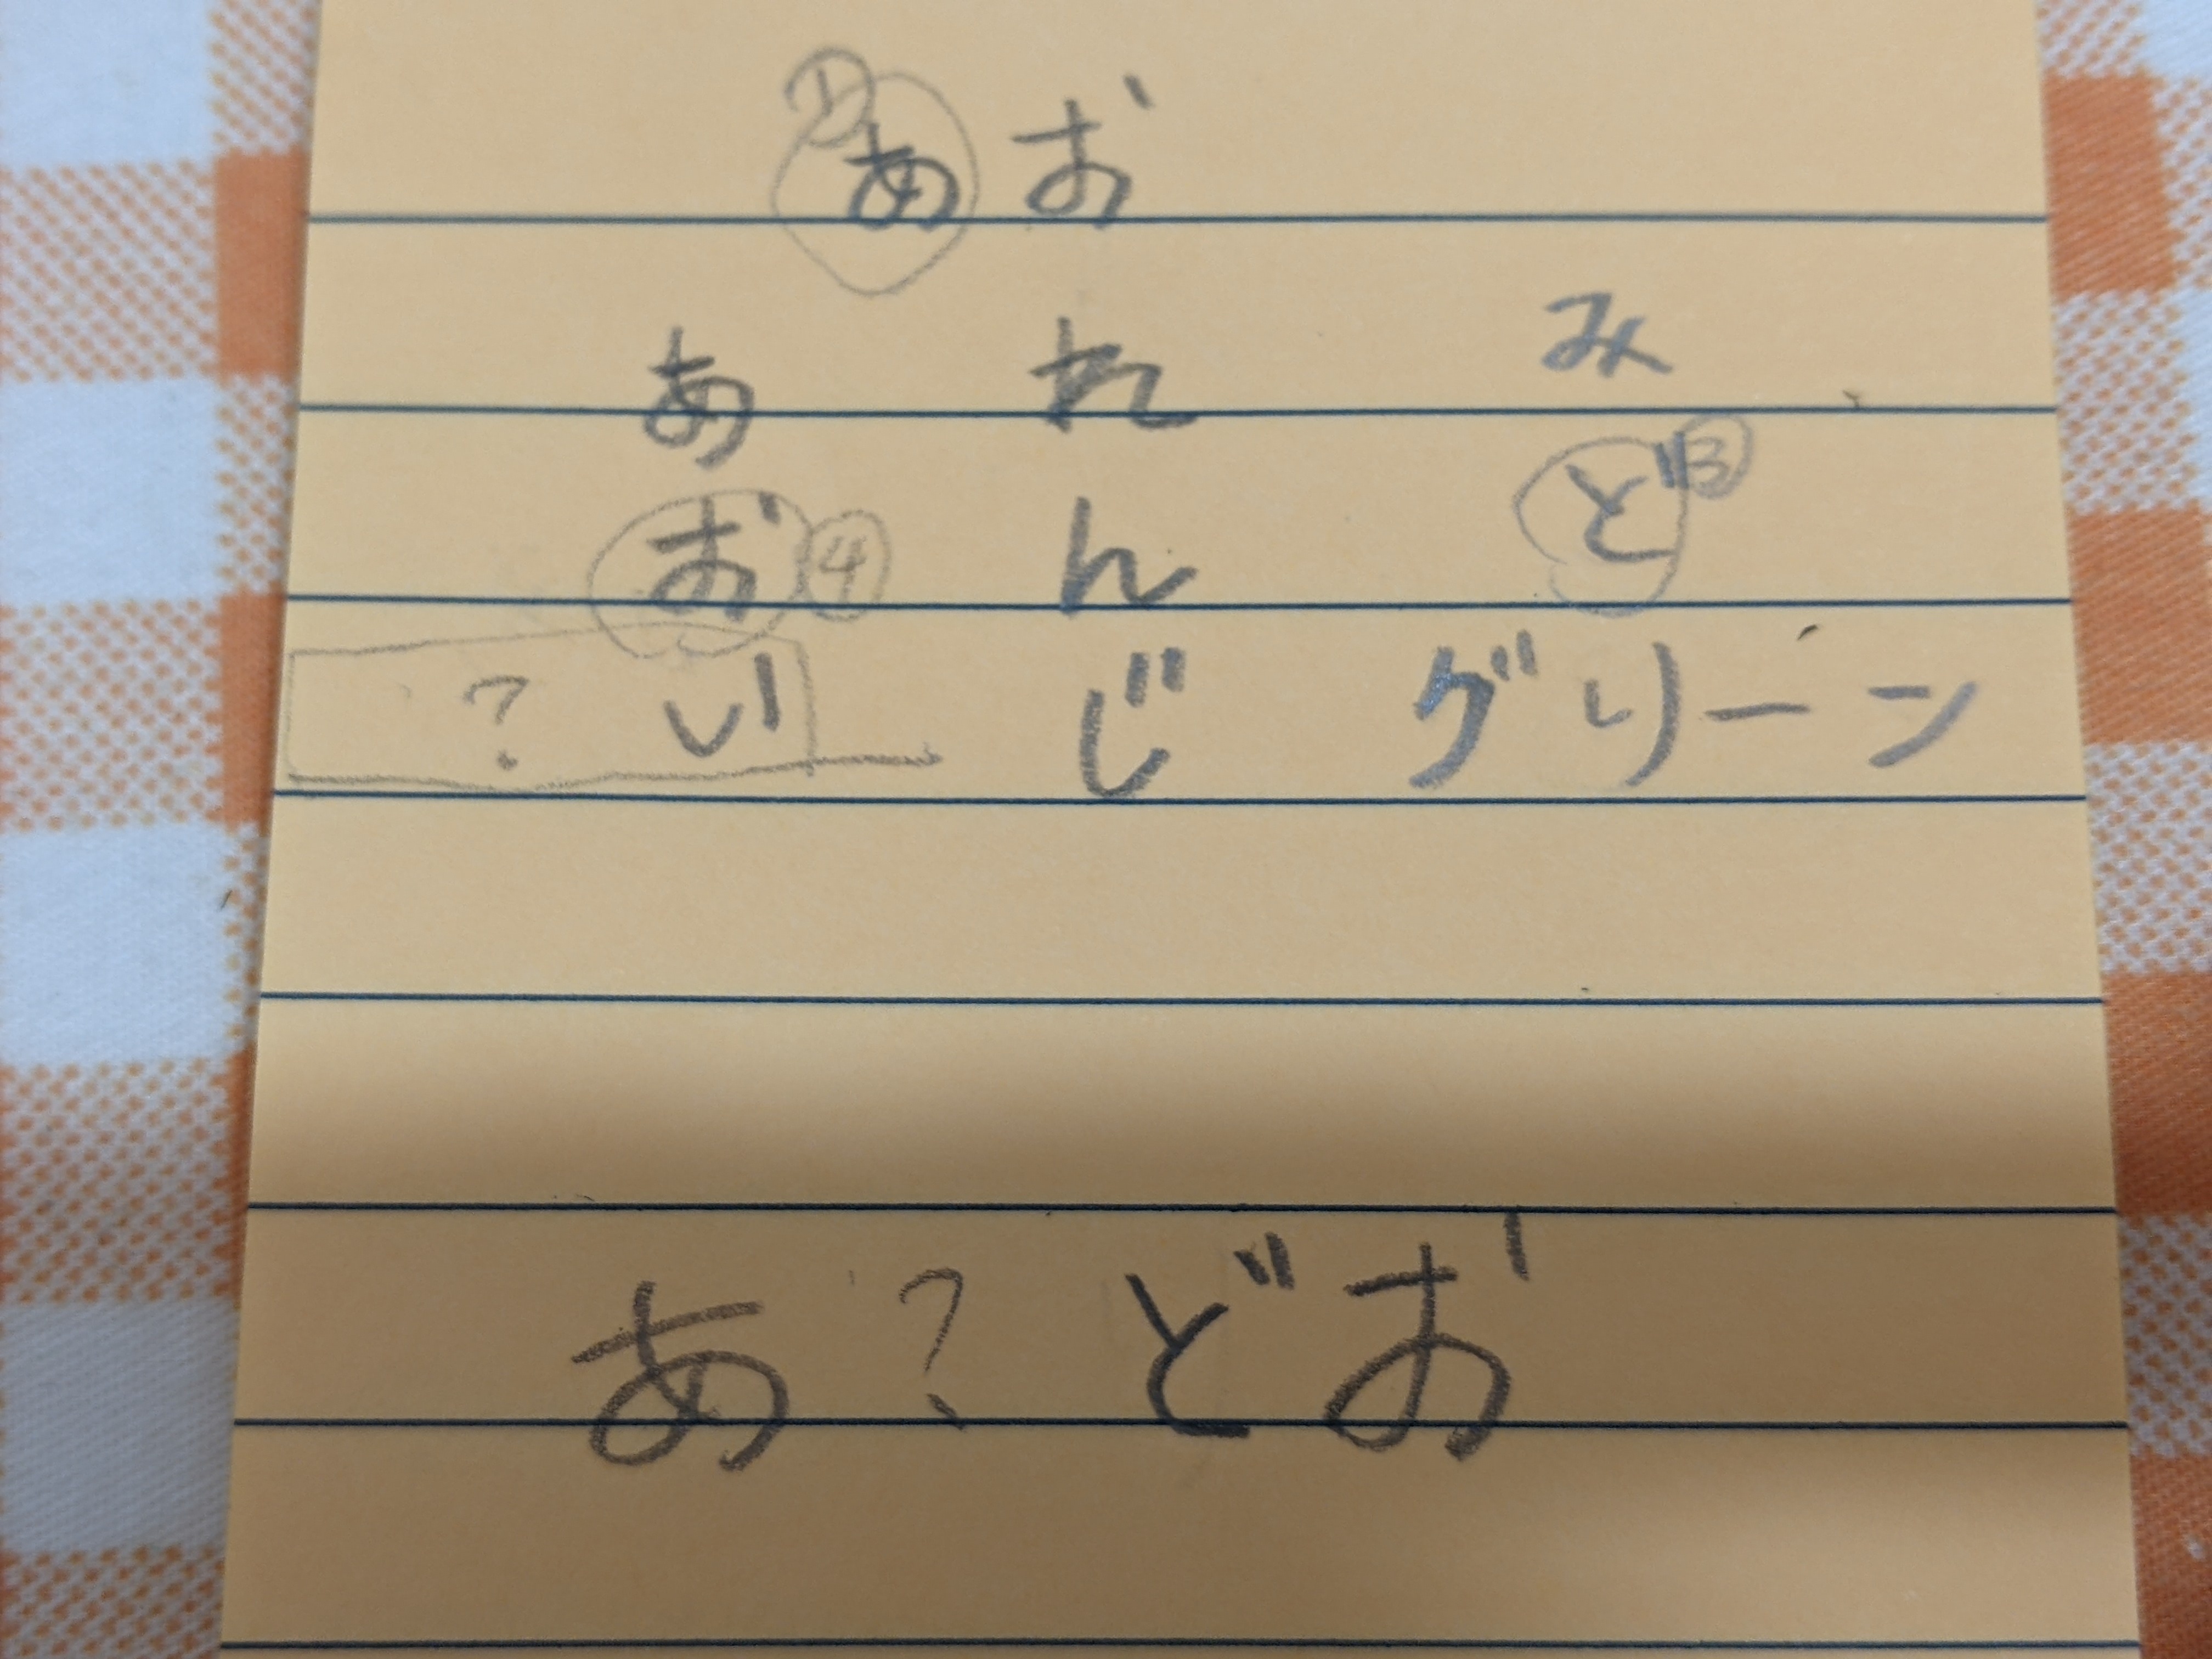 ① あ お
あ れ み
お ④ ん ど ③
? い じ グリーン
あ ? ど お